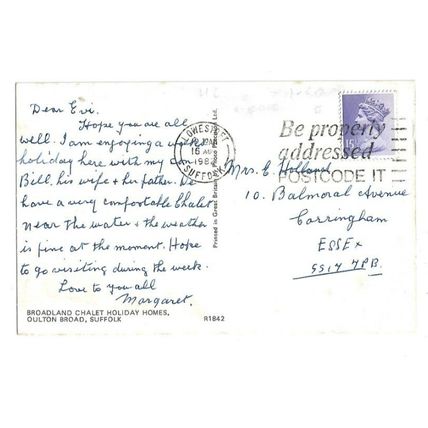 Dear Evi.
Hope you are all
well. I am enjoying a weeks
holiday here with my son
Bill, his wife & her father. We
have a very comfortable Chalet
near the water & the weather
is fine at the moment. Hope
to go visiting during the week.
Love to you all
Margaret.
BROADLAND CHALET HOLIDAY HOMES,
OULTON BROAD, SUFFOLK
R1842
Printed in Great Britain
Ltd.
LOWESTOFT
SUFFOLK
Be properly
addressed
POSTCODE IT
Mrs. E. Holland
10. Balmoral Avenue
Corringham
ESSEX
SS17 7PB.